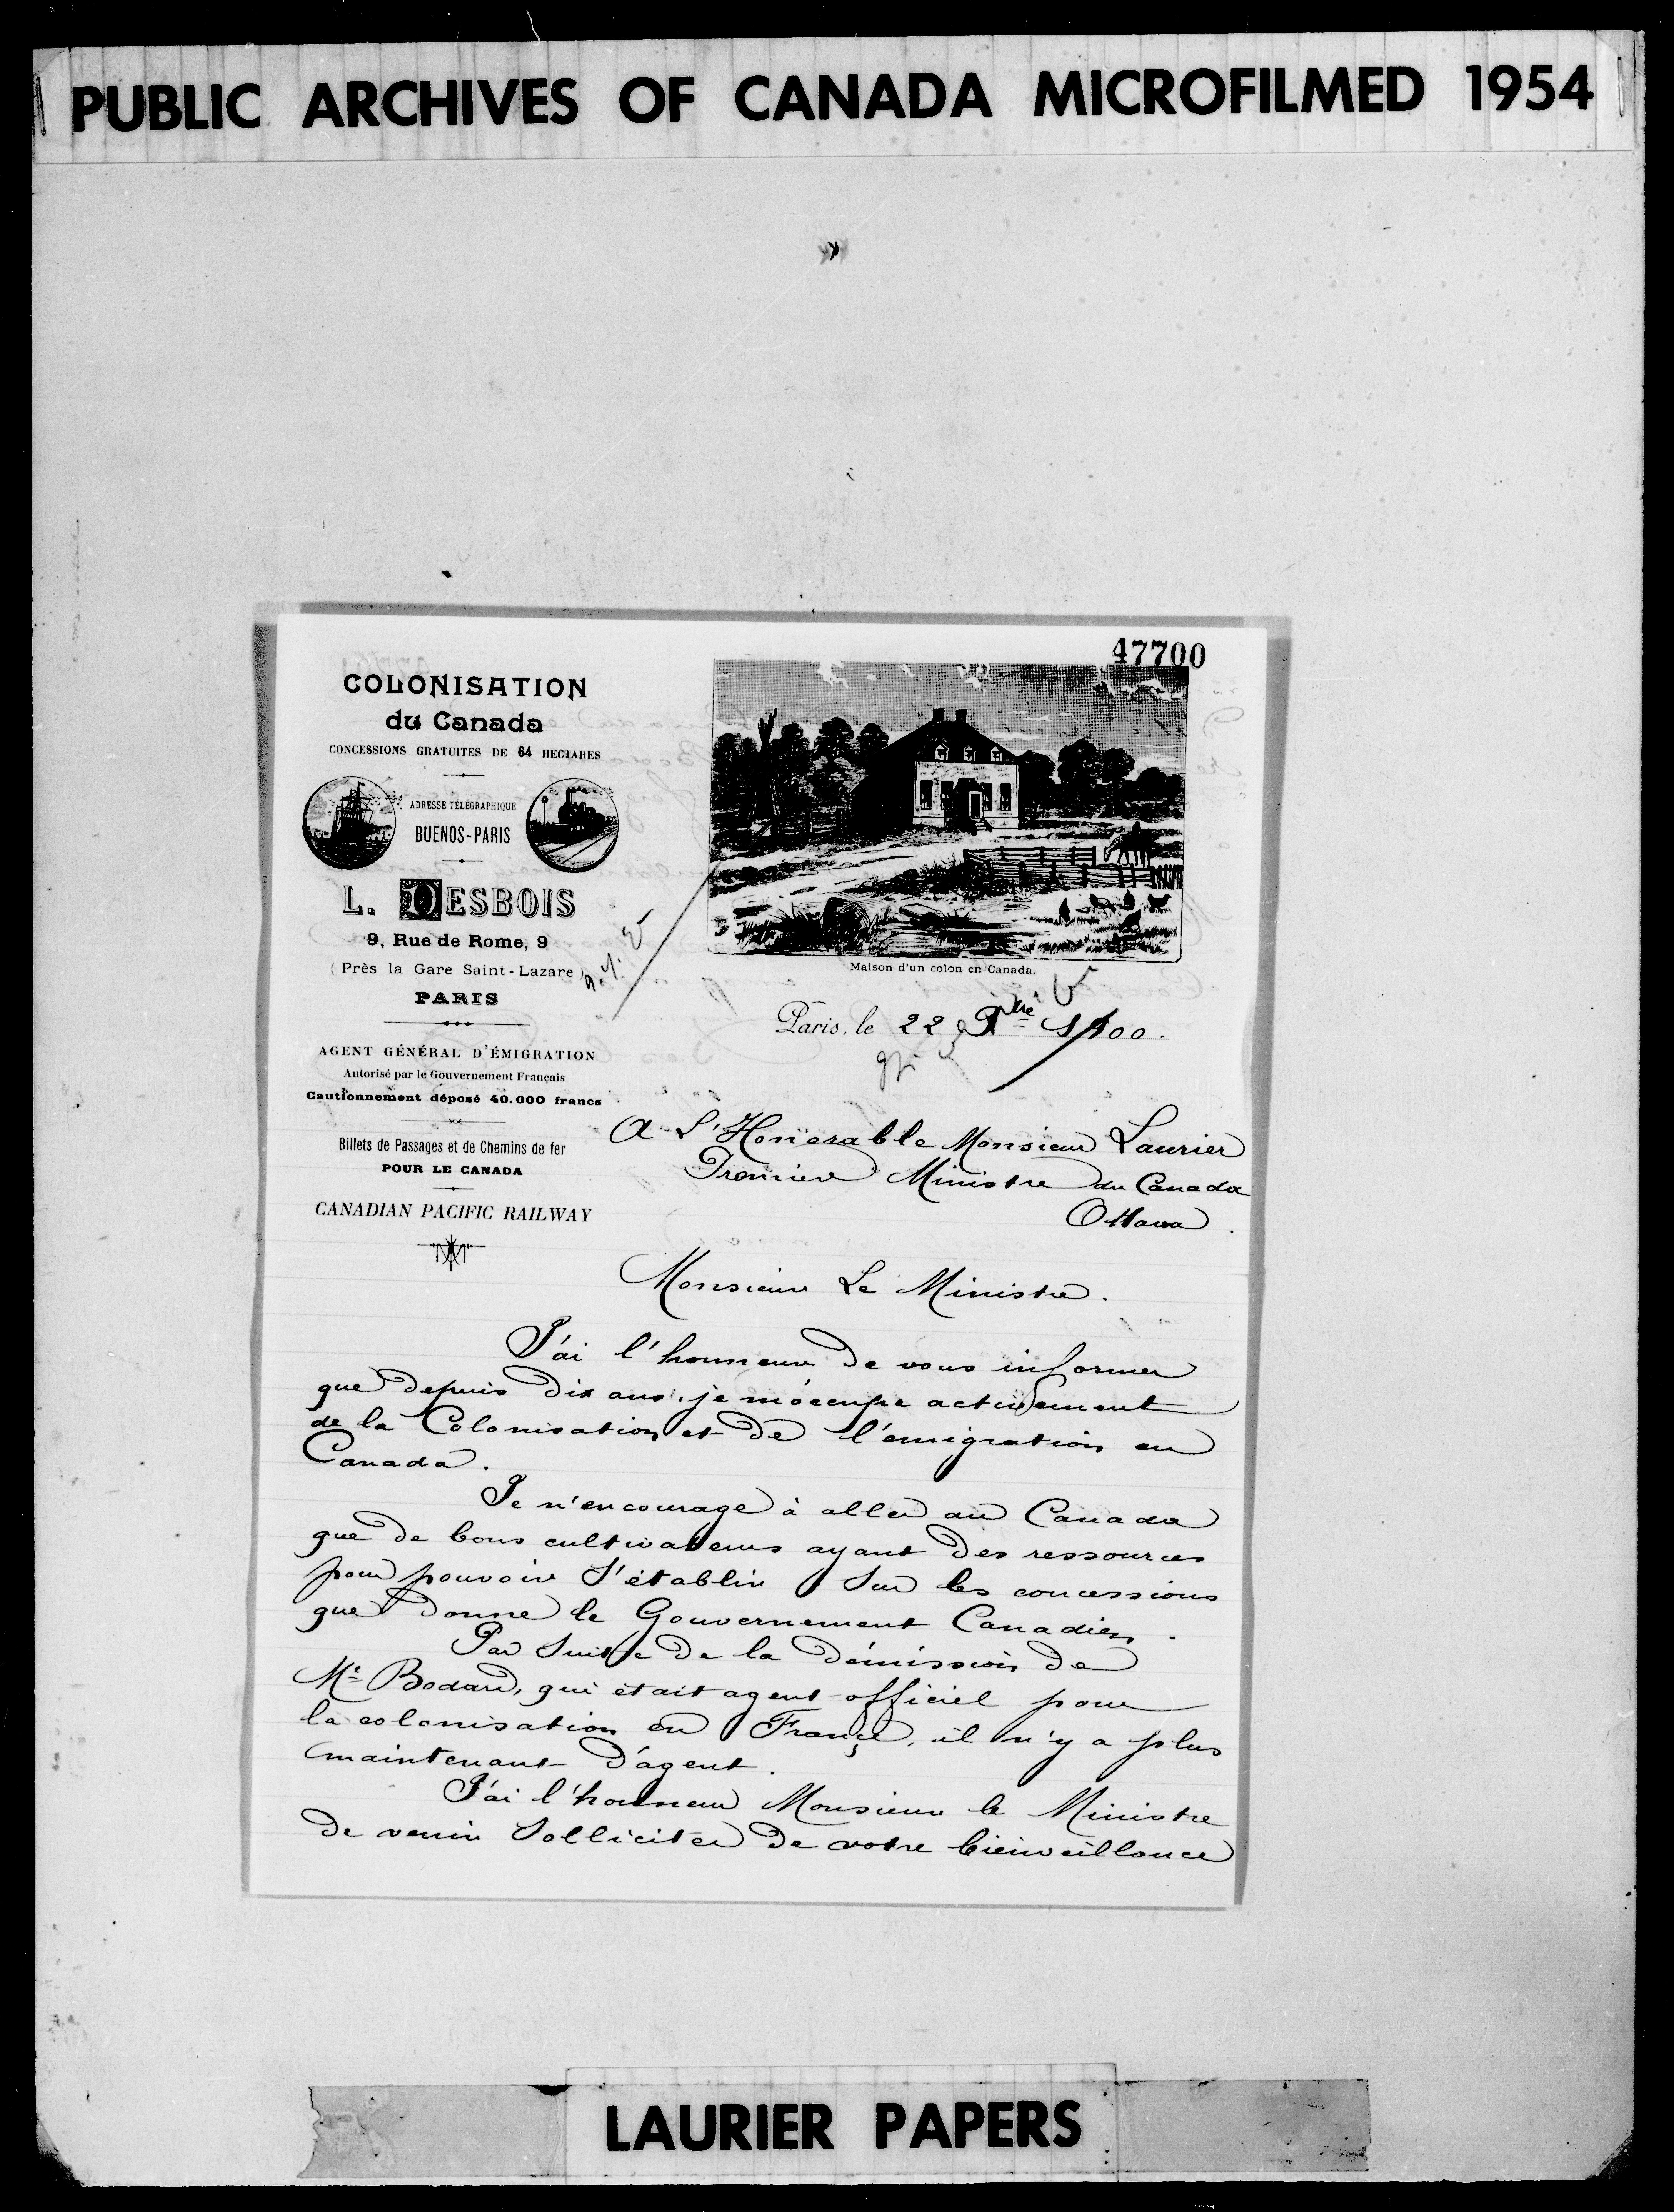 PUBLIC ARCHIVES OF CANADA MICROFILMED 1954
47700
COLONISATION
du Canada
CONCESSIONS GRATUITES DE 64 HECTARES
ADRESSE TÉLÉGRAPHIQUE
BUENOS-PARIS
L. DESBOIS
9, Rue de Rome, 9
(Près la Gare Saint-Lazare)
PARIS
AGENT GÉNÉRAL D'ÉMIGRATION
Autorisé par le Gouvernement Français
Cautionnement déposé 40.000 francs
Billets de Passages et de Chemins de fer
POUR LE CANADA
CANADIAN PACIFIC RAILWAY
Maison d'un colon en Canada.
Paris, le 22 9bre 1900.
A L'Honerable Monsieur Laurier
Premier Ministre du Canada
Ottawa.
Monsieur Le Ministre.
J'ai l'honneur de vous informer
que depuis dix ans, je m'occupe activement
de la Colonisation et de l'émigration au
Canada.
Je n'encourage à aller au Canada
que de bons cultivateurs ayant des ressources
pour pouvoir s'établir sur les concessions
que donne le Gouvernement Canadien.
Par suite de la démission de
Mr Bodard, qui était agent officiel pour
la colonisation en France, il n'y a plus
maintenant d'agent.
J'ai l'honneur Monsieur le Ministre
de venir solliciter de votre bienveillance
LAURIER PAPERS